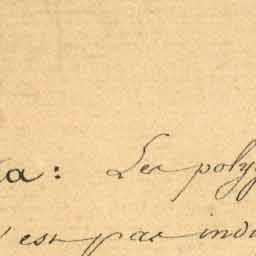 a : Les poly
est pas indi